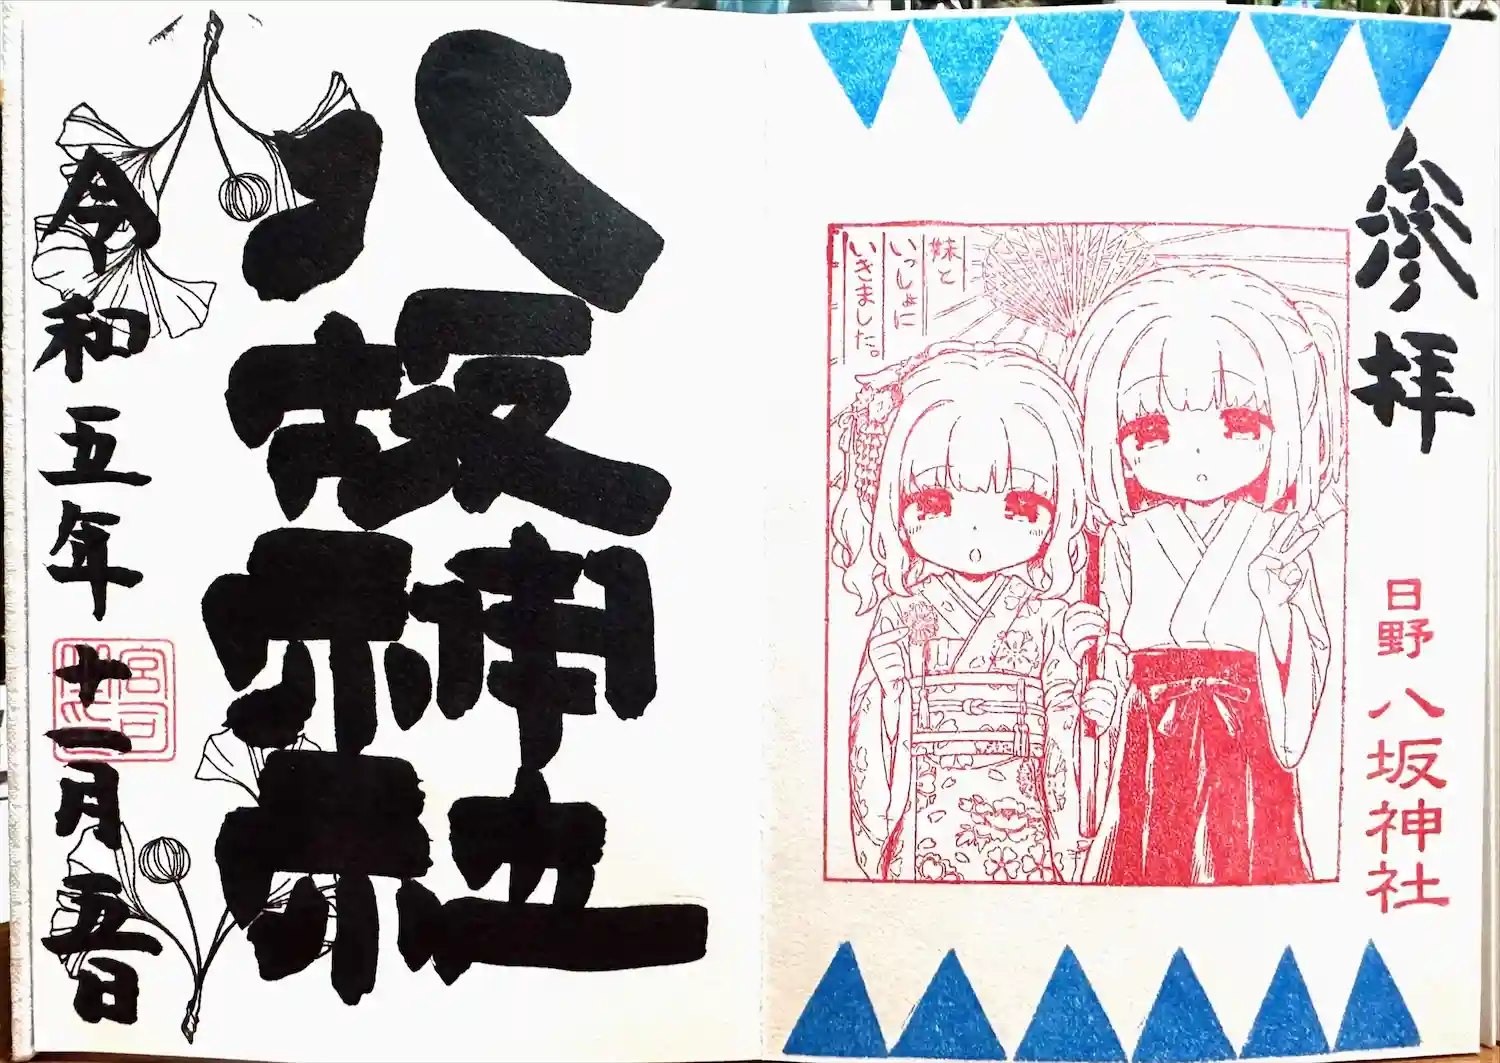 參拝
日野 八坂神社
妹と
いっしょに
いきました。
八坂神社
令和五年十一月五日
宮司